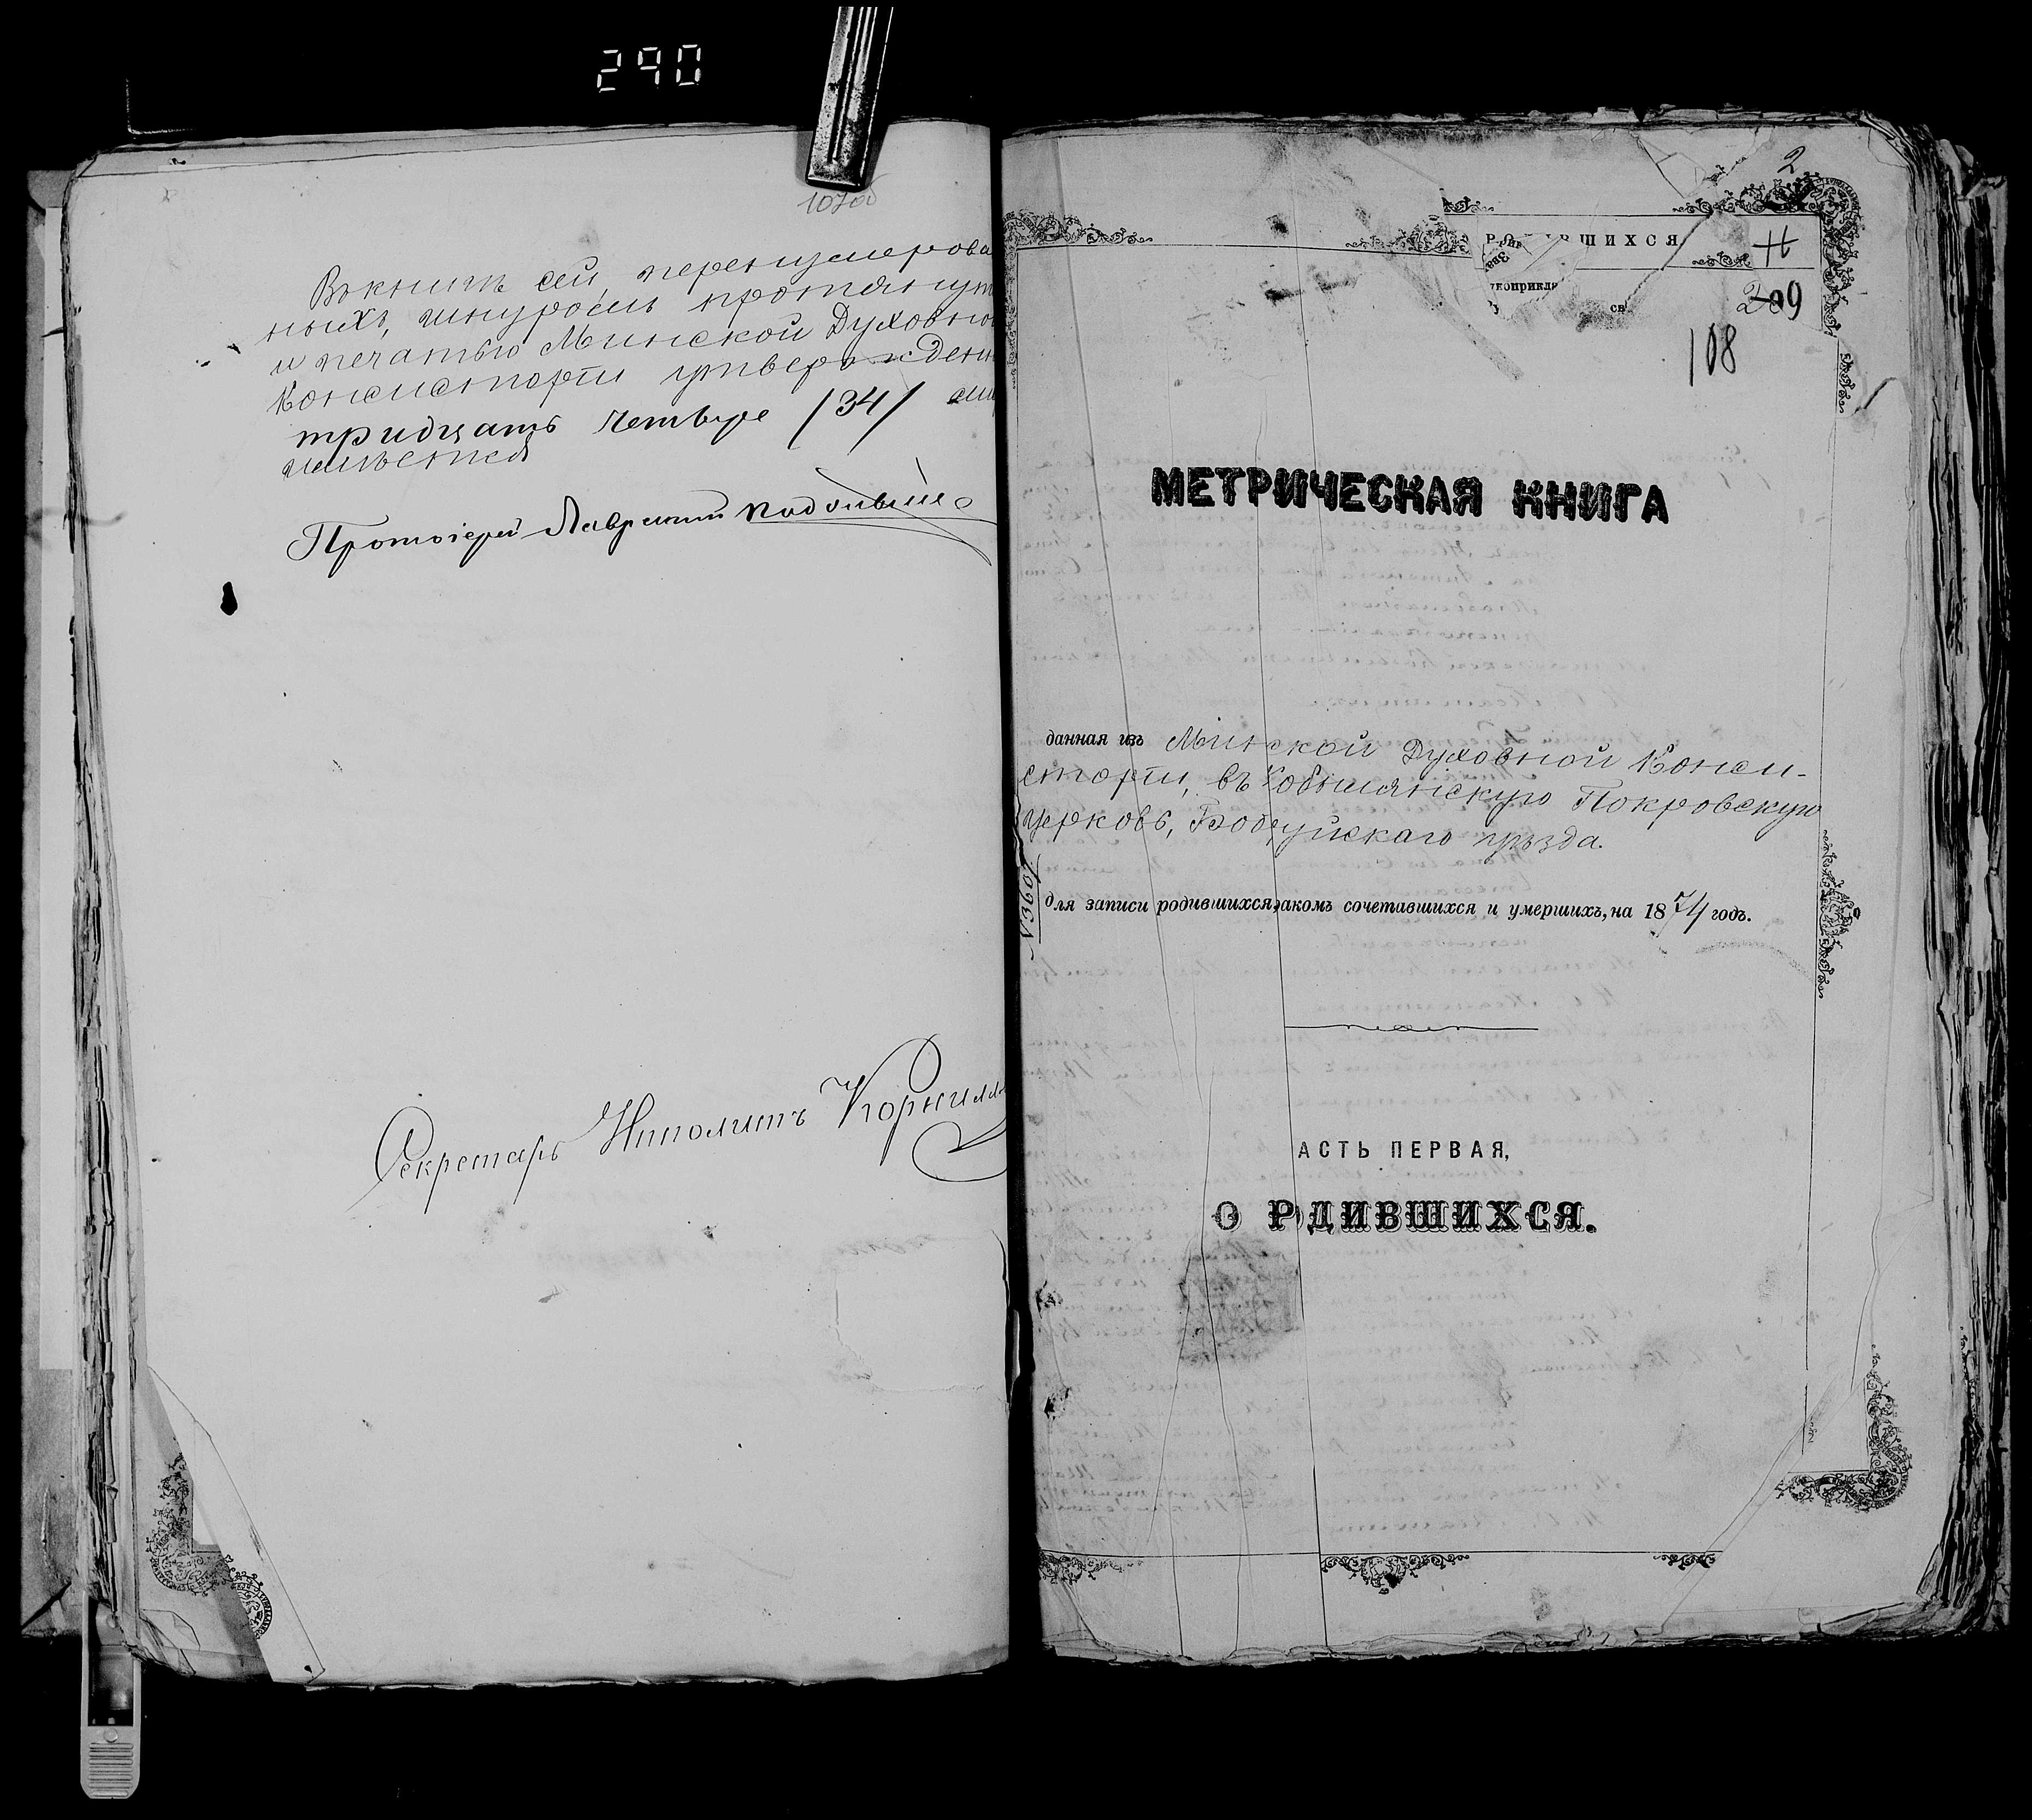 290
107об
Въ книгѣ сей, перенумерова
ныхъ, шнуромъ протянут
и печатью Минской Духовно
Консисторіи утвержден
тридцать четыре /34/
имѣется
Протоіерей Лаврентій
Секретарь Ипполитъ Корнил
2
РО ВШИХСЯ
11
Зва
укоприкла
св.
209
108
МЕТРИЧЕСКАЯ КНИГА
данная изъ Минской Духовной Конси-
сторіи, въ Кобылянскую Покровскую
церковь, Бобруйскаго уѣзда.
№ 3607.
для записи родившихся, акомъ сочетавшихся и умершихъ, на 1874 годъ.
АСТЬ ПЕРВАЯ,
О РДИВШИХСЯ.